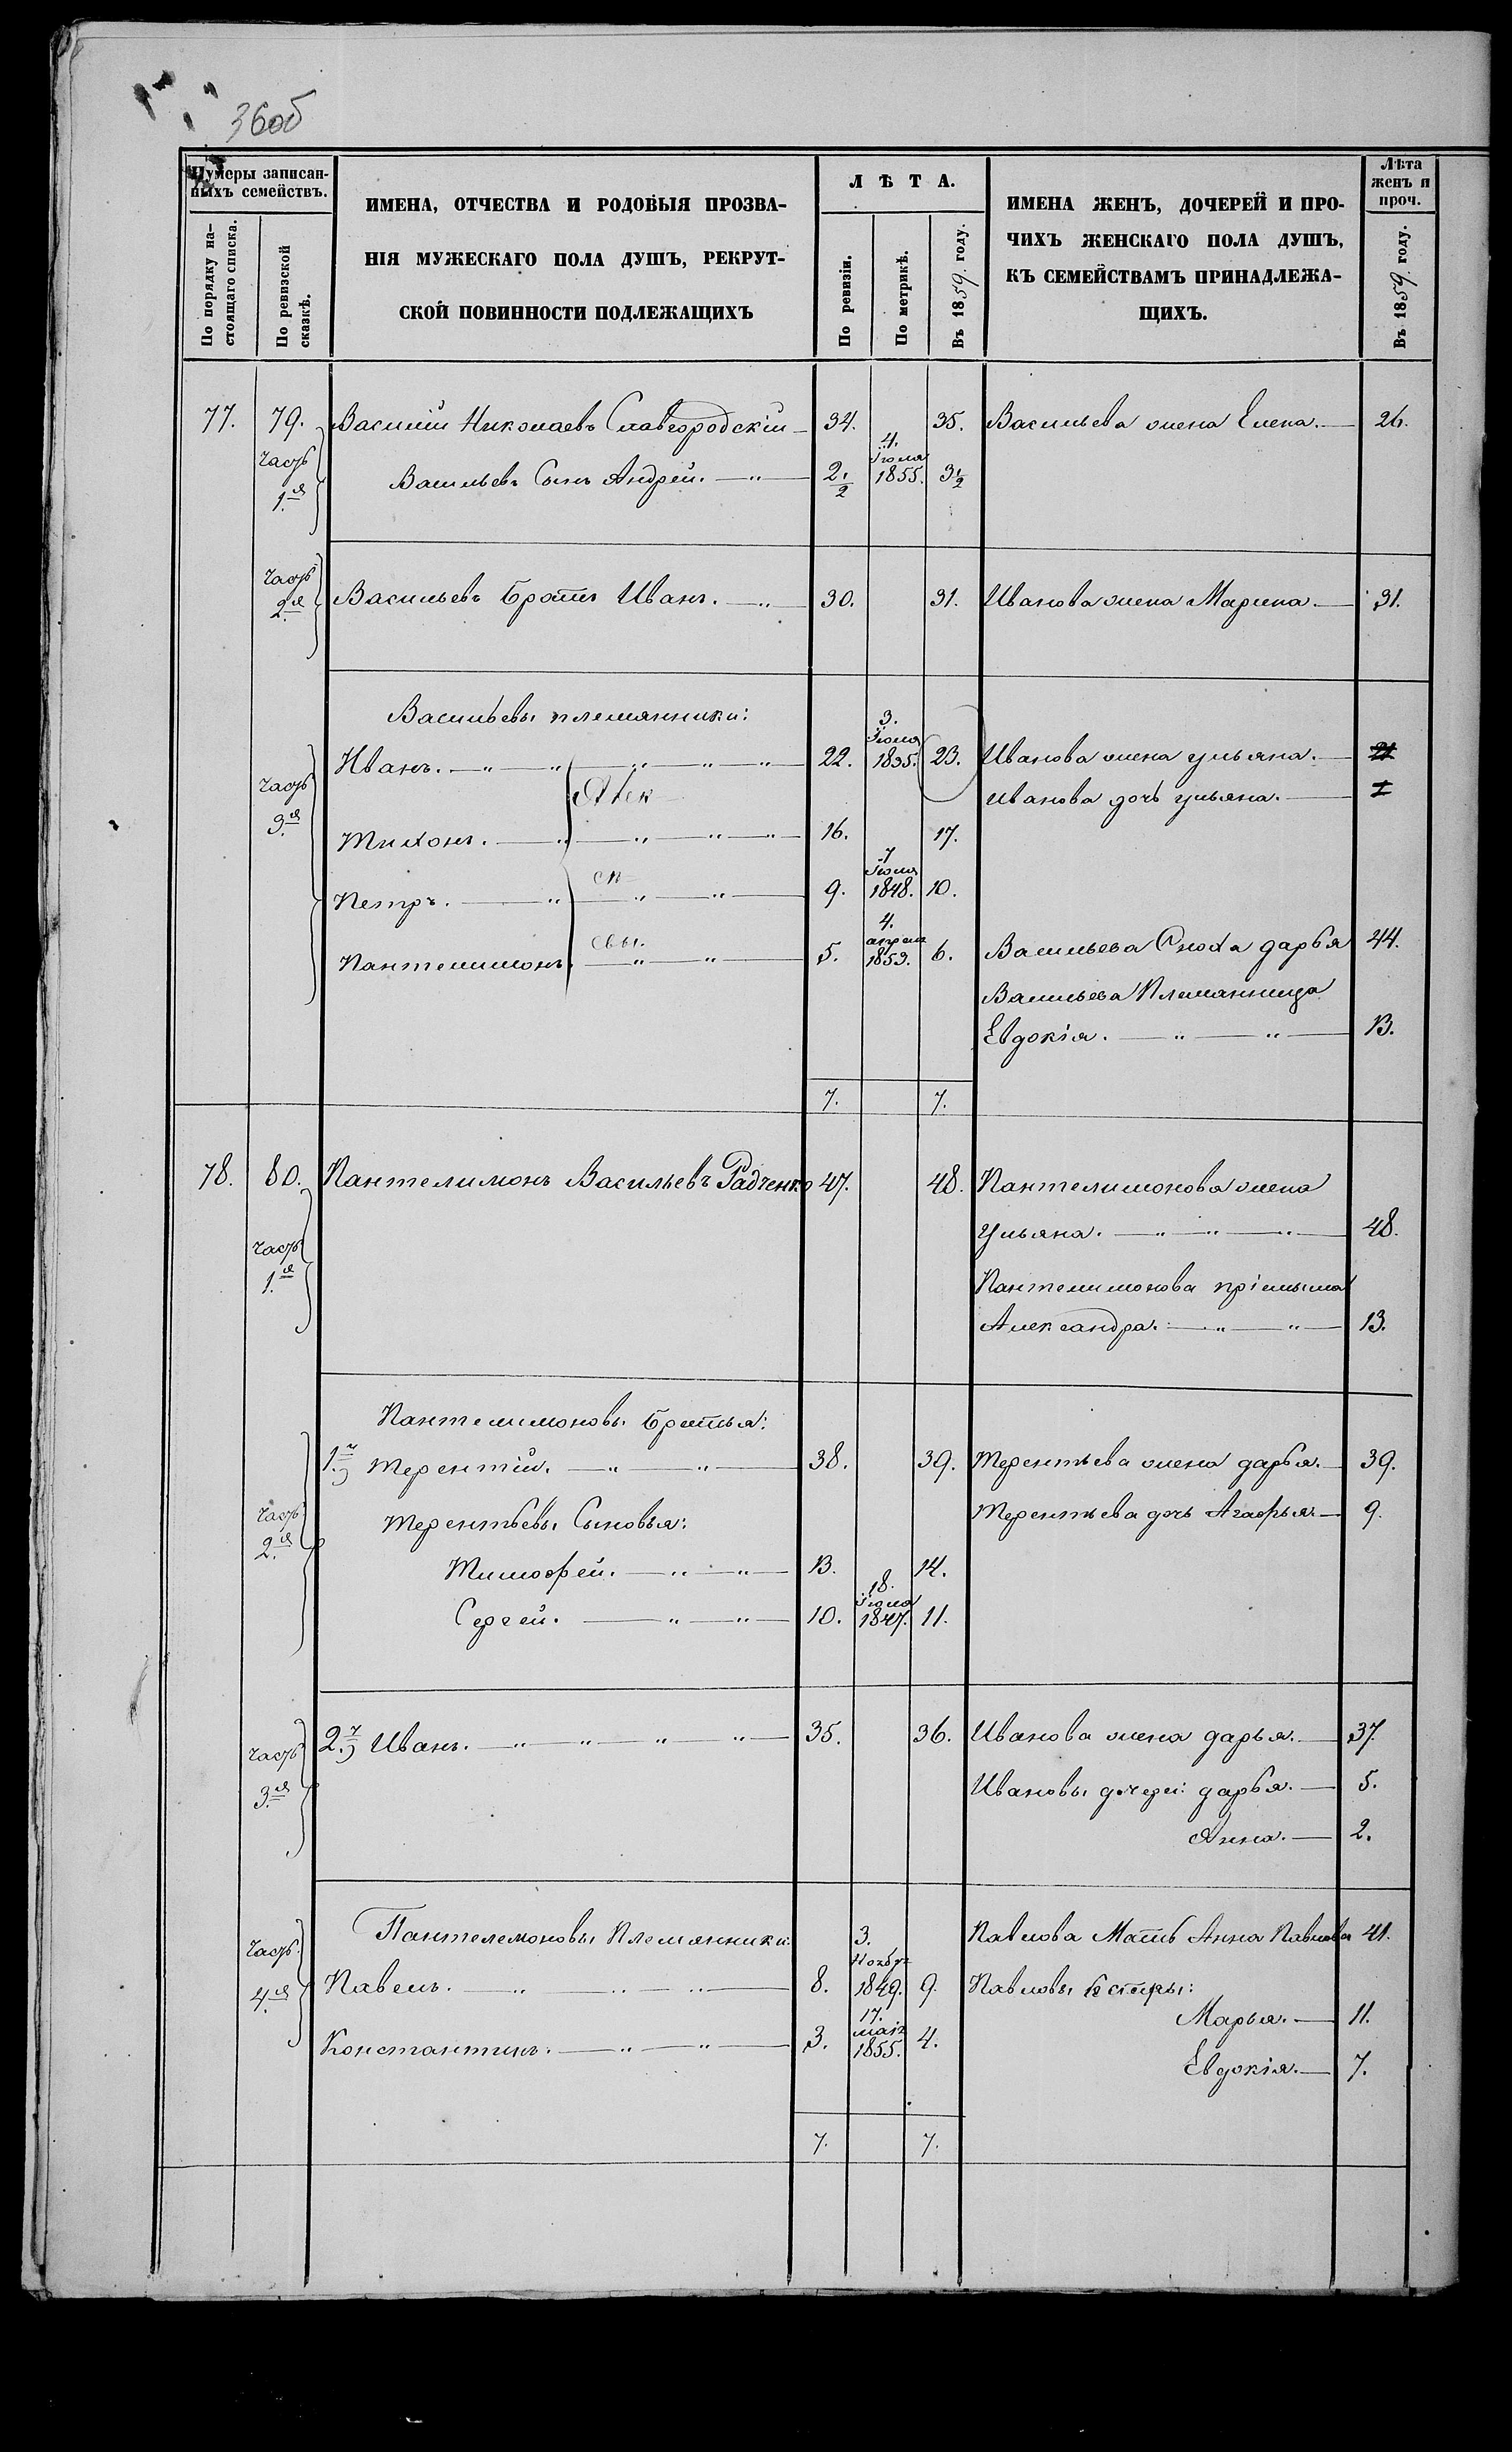 36об
Нумеры записан-
ныхъ семействъ.
По порядку на-
стоящаго списка.
По ревизской
сказкѣ.
ИМЕНА, ОТЧЕСТВА И РОДОВЫЯ ПРОЗВА-
НІЯ МУЖЕСКАГО ПОЛА ДУШЪ, РЕКРУТ-
СКОЙ ПОВИННОСТИ ПОДЛЕЖАЩИХЪ
ЛѢТА.
По ревизіи.
По метрикѣ.
Въ 1859 году.
ИМЕНА ЖЕНЪ, ДОЧЕРЕЙ И ПРО-
ЧИХЪ ЖЕНСКАГО ПОЛА ДУШЪ,
КЪ СЕМЕЙСТВАМЪ ПРИНАДЛЕЖА-
ЩИХЪ.
Лѣта
женъ и
проч.
Въ 1859 году.
77. 79. Василій Николаевъ Славгородскій 34. 35. Васильева жена Елена. 26.
Часть 1.я
Васильевъ Сынъ Андрей. 2 1/2 4. Іюля 1855. 3 1/2
Часть 2.я
Васильевъ Братъ Иванъ. 30. 31. Иванова жена Марина. 31.
Васильевы племянники:
Часть 3.я
Иванъ. 22. 3. Іюля 1835. 23. Иванова жена ульяна. 21
Иванова дочь ульяна. 1
Тихонъ. 16. 17.
Петръ. 9. 7 Іюля 1848. 10.
Пантелимонъ. 5. 4. апреля 1853. 6. Васильева Сноха дарья 44.
Васильева Племянница
Евдокія. 13.
7. 7.
78. 80. Пантелимонъ Васильевъ Радченко 47. 48. Пантелимонова жена
Ульяна. 48.
Часть 1.я
Пантелимонова пріемыша
Александра. 13.
Пантелимоновы Братья:
1.й Терентій. 38. 39. Терентьева жена дарья. 39.
Часть 2.я
Терентьевы Сыновья: Терентьева дочь Агафья 9.
Тимофей. 13. 14.
Сергей. 10. 18. Іюля 1847. 11.
Часть 3.я
2.й Иванъ. 35. 36. Иванова жена дарья. 37.
Ивановы дочери: дарья. 5.
Анна. 2.
Часть 4.я
Пантелемоновы Племянники: Павлова Мать Анна Павлова 41.
Павелъ. 8. 3. Ноября 1849. 9. Павловы Сестры:
Марья. 11.
Константинъ. 3. 17. маія 1855. 4.
Евдокія. 7.
7. 7.